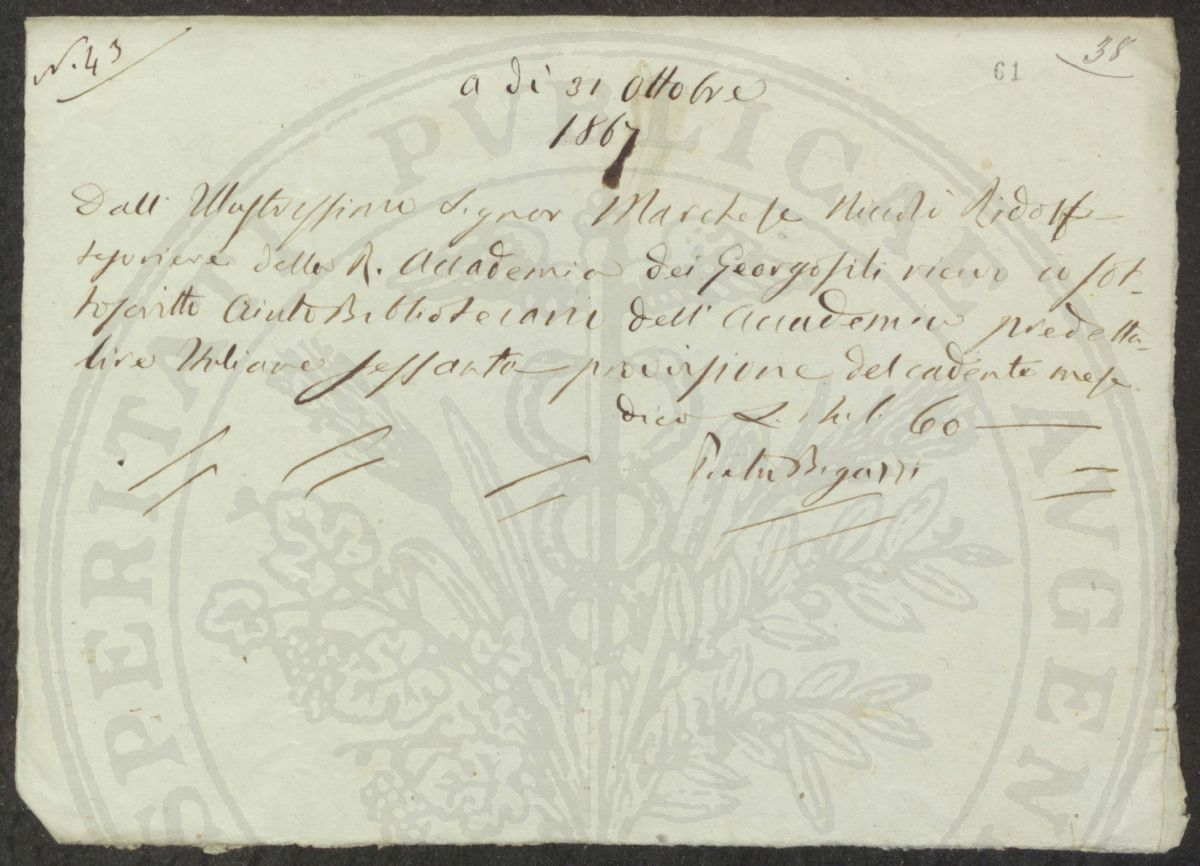 N. 43
38
61
a dì 31 Ottobre
1867
Dall' Illustrissimo Signor Marchese Niccolò Ridolfi
tesoriere della R. Accademia dei Georgofili ricevo io sot-
toscritto Aiuto Bibliotecario dell' Accademia predetta
lire Italiane sessanta provvisione del cadente mese
dico L. Ital. 60
Pietro Bigazzi
PROSPERITATI PVBLICAE AVGEN